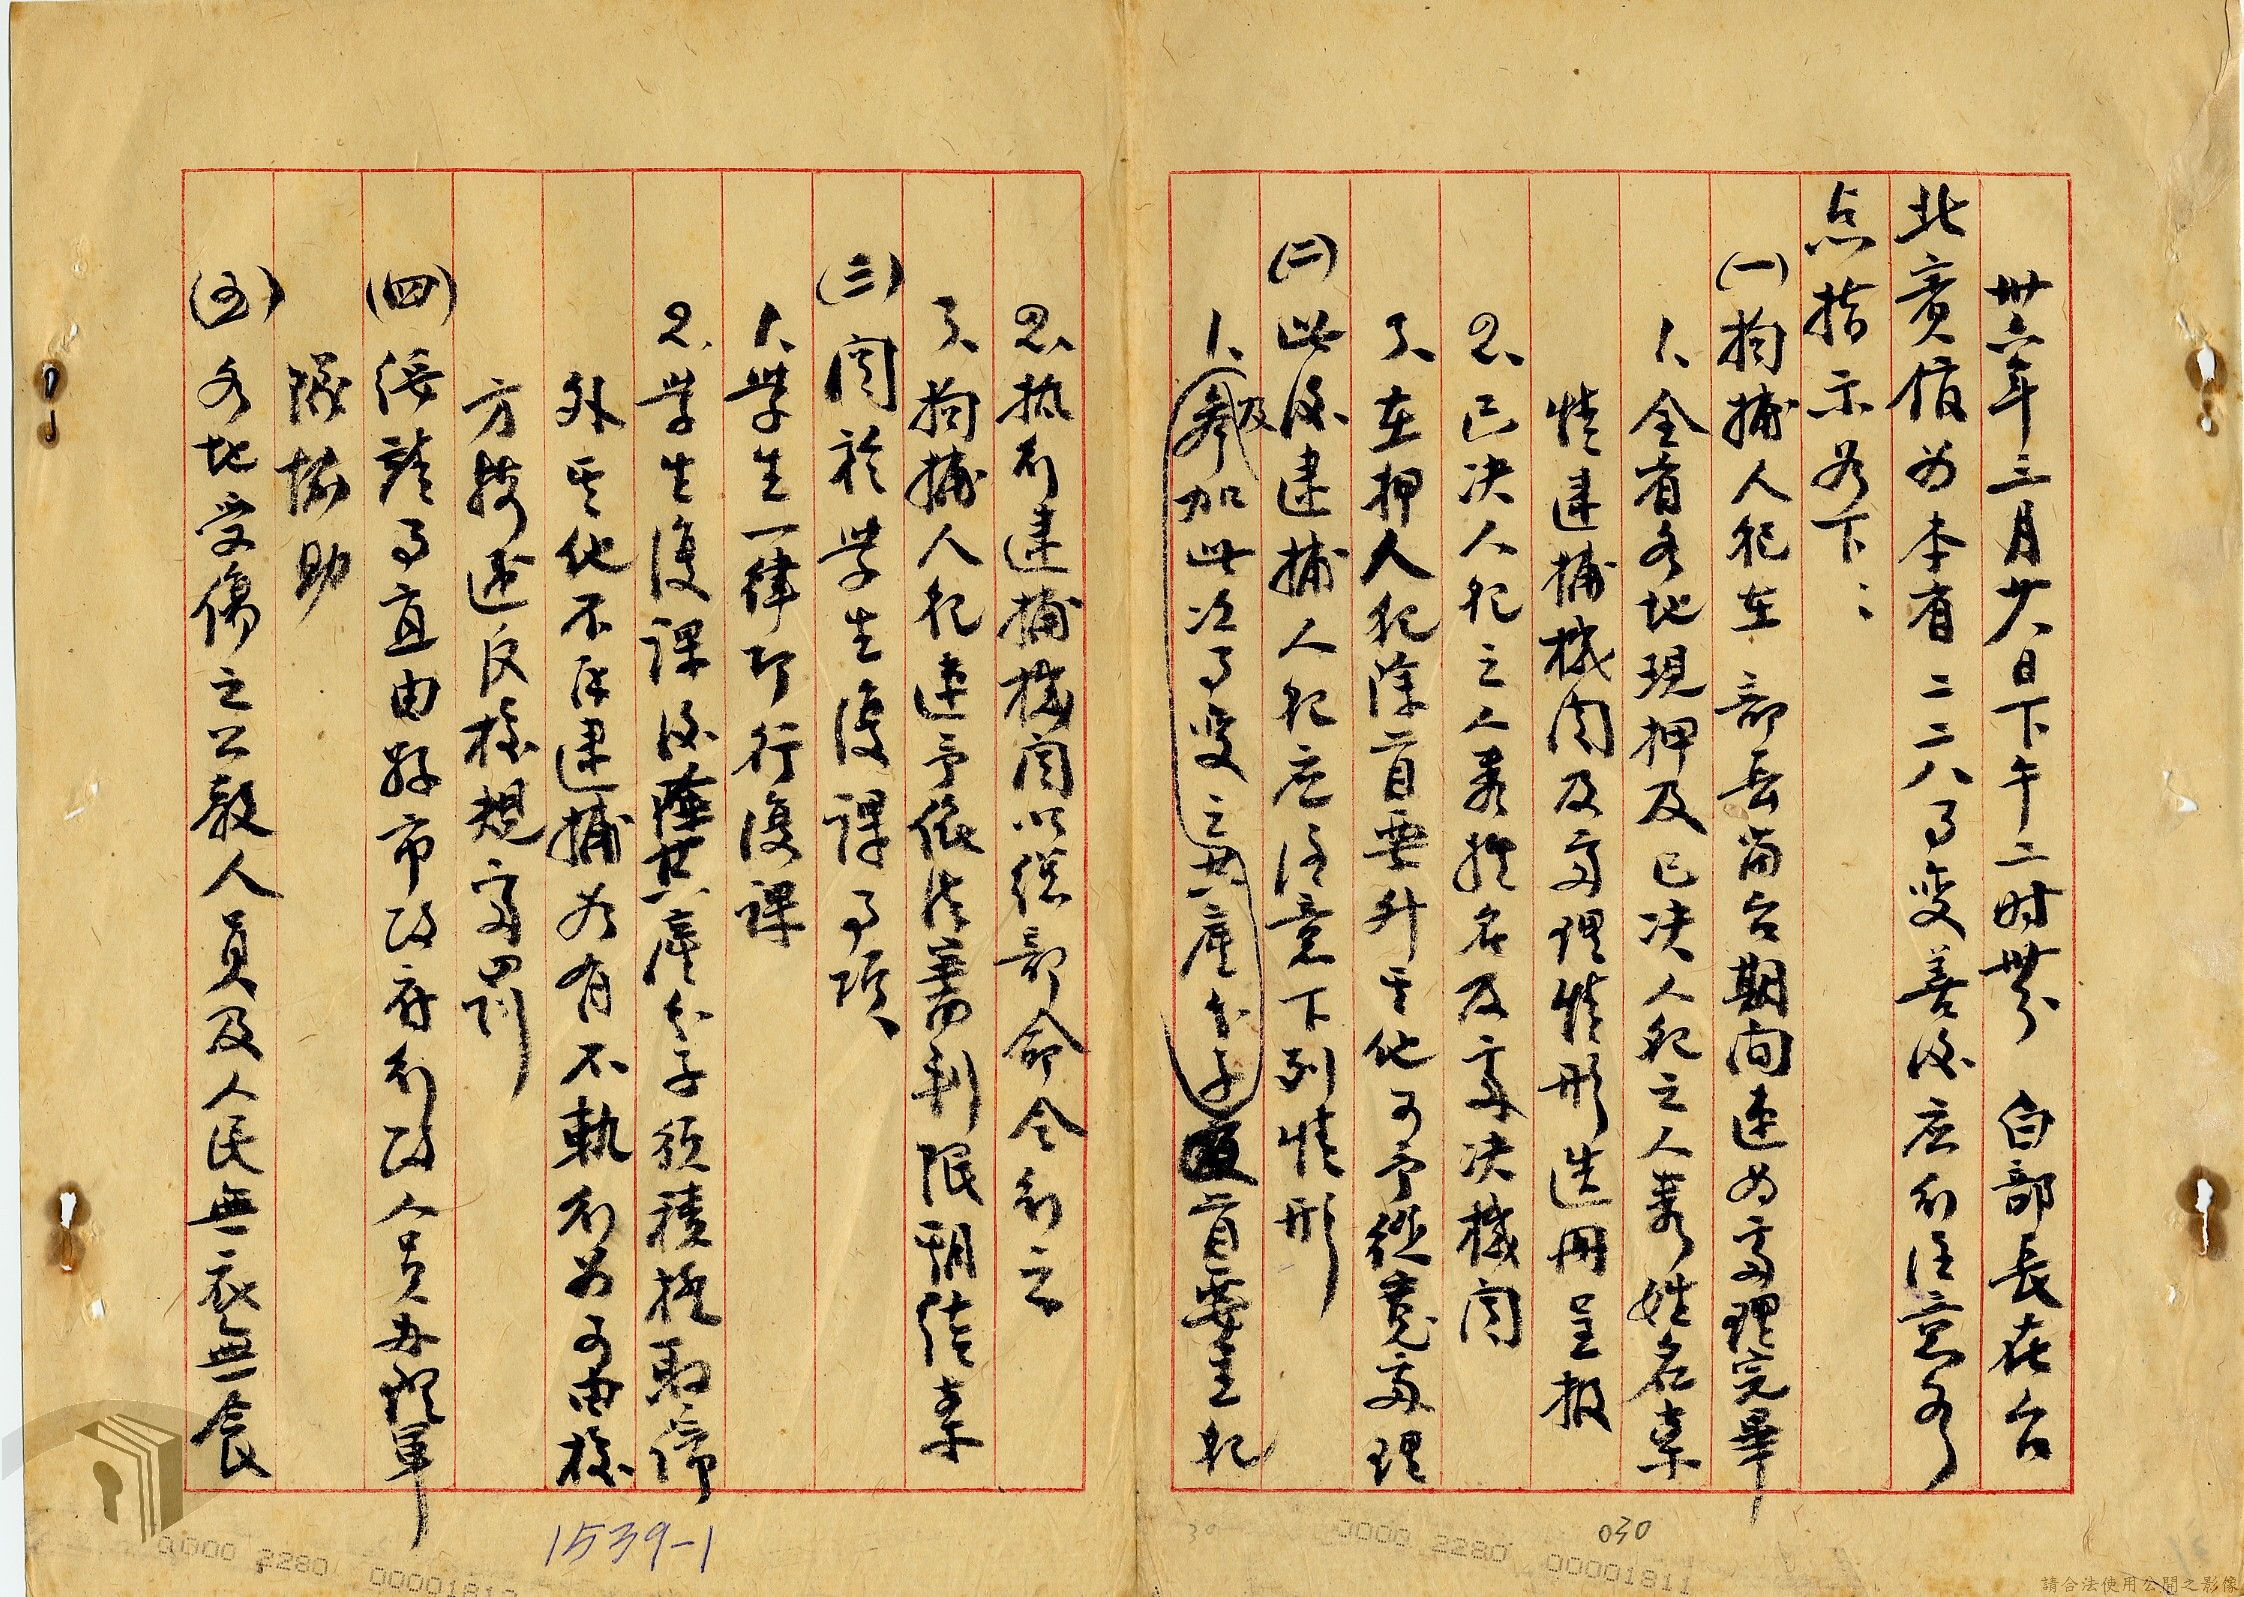 卅六年三月廿八日下午二时卅分 白部長在台
北賓館为本省二二八事变善後应行注意各
点指示如下：
(一)拘捕人犯在 部長留台期间速为處理完畢
1、全省各地現押及已决人犯之人数姓名案
情逮捕機関及處理情形造冊呈报
2、已决人犯之人数姓名及處决機関
3、在押人犯除首要外其他可予從寬處理
(二)此後逮捕人犯应注意下列情形
1、參加此次事变之共產分子及首要主犯
2、执行逮捕機関以總部命令行之
3、拘捕人犯速予依法審判限期結案
(三)関於学生復課事項
1、学生一律即行復課
2、学生復課後除共產分子须積極取締
外其他不得逮捕如有不軌行为可由校
方按违反校規處罰
(四)綏靖事宜由縣市政府行政人員办理軍
隊协助
(五)各地受傷之公教人員及人民無衣無食
1539-1
030
0000 2280 00001811
0000 2280
請合法使用公開之影像